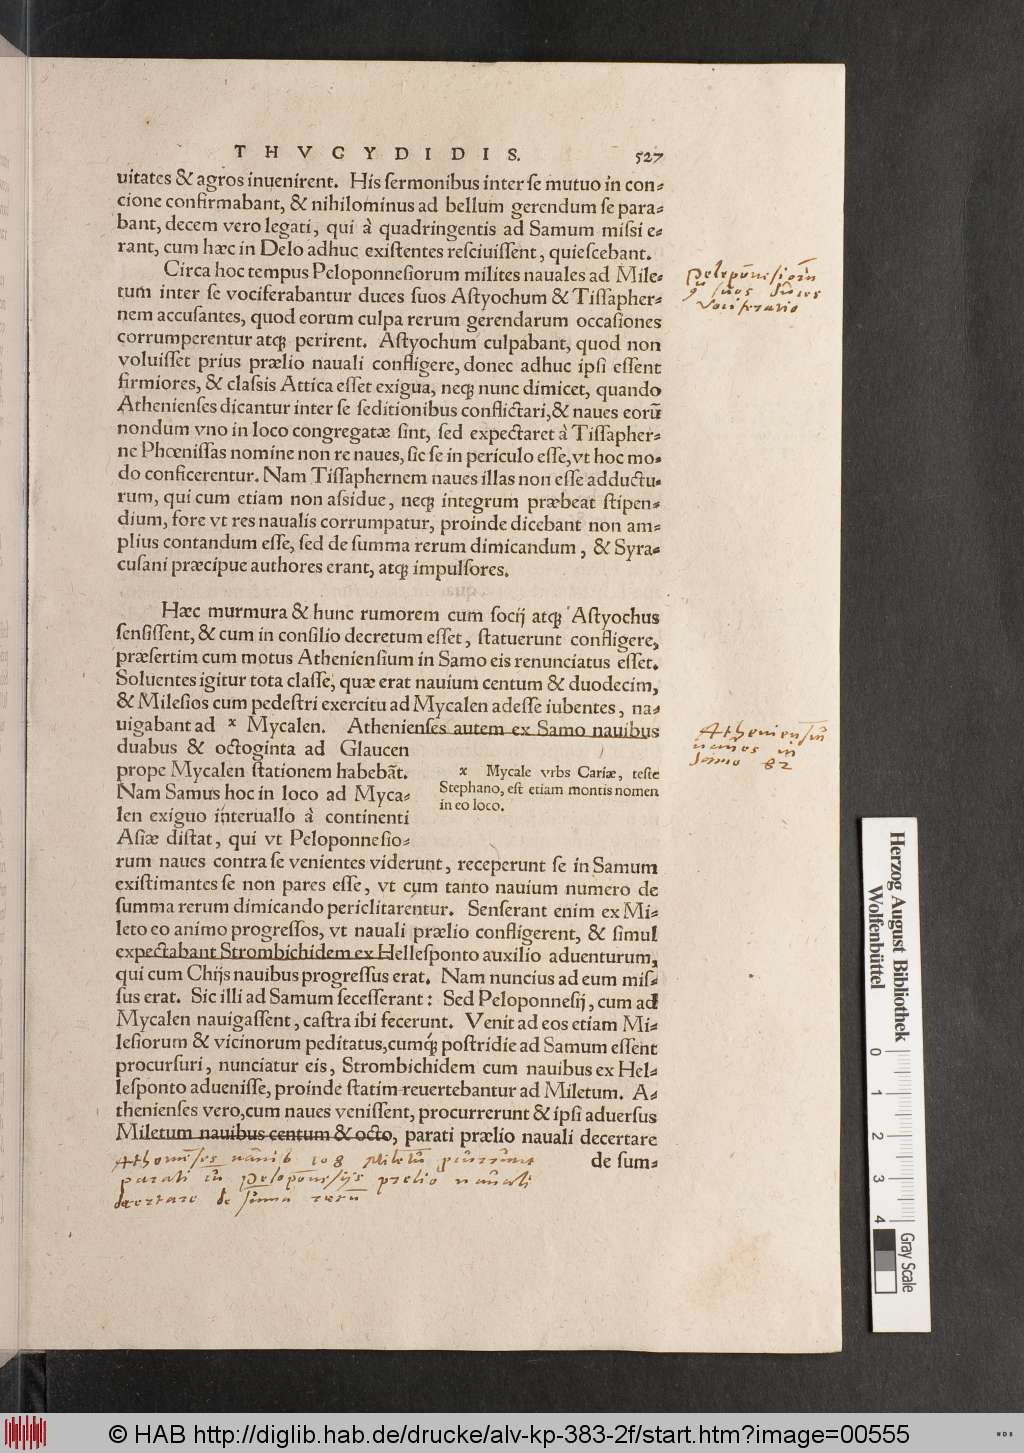 THVCYDIDIS. 527
uitates & agros inuenirent. His ſermonibus inter ſe mutuo in con⸗
cione confirmabant, & nihilominus ad bellum gerendum ſe para⸗
bant, decem vero legati, qui à quadringentis ad Samum miſsi e⸗
rant, cum hæc in Delo adhuc exiſtentes reſciuiſſent, quieſcebant.
Circa hoc tempus Peloponneſiorum milites nauales ad Mile⸗
tum inter ſe vociferabantur duces ſuos Aſtyochum & Tiſſapher⸗
nem accuſantes, quod eorum culpa rerum gerendarum occaſiones
corrumperentur atq; perirent. Aſtyochum culpabant, quod non
voluiſſet prius prælio nauali confligere, donec adhuc ipſi eſſent
firmiores, & claſsis Attica eſſet exigua, neq; nunc dimicet, quando
Athenienſes dicantur inter ſe ſeditionibus conflictari, & naues eorū
nondum vno in loco congregatæ ſint, ſed expectaret à Tiſſapher⸗
ne Phœniſſas nomine non re naues, ſic ſe in periculo eſſe, vt hoc mo⸗
do conficerentur. Nam Tiſſaphernem naues illas non eſſe adductu⸗
rum, qui cum etiam non aſsidue, neq; integrum præbeat ſtipen⸗
dium, fore vt res naualis corrumpatur, proinde dicebant non am⸗
plius contandum eſſe, ſed de ſumma rerum dimicandum, & Syra⸗
cuſani præcipue authores erant, atq; impulſores.
Hæc murmura & hunc rumorem cum ſocij atq; Aſtyochus
ſenſiſſent, & cum in conſilio decretum eſſet, ſtatuerunt confligere,
præſertim cum motus Athenienſium in Samo eis renunciatus eſſet.
Soluentes igitur tota claſſe, quæ erat nauium centum & duodecim,
& Mileſios cum pedeſtri exercitu ad Mycalen adeſſe iubentes, na⸗
uigabant ad x Mycalen. Athenienſes autem ex Samo nauibus
duabus & octoginta ad Glaucen
prope Mycalen ſtationem habebāt.
Nam Samus hoc in loco ad Myca⸗
len exiguo interuallo à continenti
Aſiæ diſtat, qui vt Peloponneſio⸗
x Mycale vrbs Cariæ, teſte
Stephano, eſt etiam montis nomen
in eo loco.
rum naues contra ſe venientes viderunt, receperunt ſe in Samum
exiſtimantes ſe non pares eſſe, vt cum tanto nauium numero de
ſumma rerum dimicando periclitarentur. Senſerant enim ex Mi⸗
leto eo animo progreſſos, vt nauali prælio confligerent, & ſimul
expectabant Strombichidem ex Helleſponto auxilio aduenturum,
qui cum Chijs nauibus progreſſus erat. Nam nuncius ad eum miſ⸗
ſus erat. Sic illi ad Samum ſeceſſerant: Sed Peloponneſij, cum ad
Mycalen nauigaſſent, caſtra ibi fecerunt. Venit ad eos etiam Mi⸗
leſiorum & vicinorum peditatus, cumq́; poſtridie ad Samum eſſent
procurſuri, nunciatur eis, Strombichidem cum nauibus ex Hel⸗
leſponto adueniſſe, proinde ſtatim reuertebantur ad Miletum. A⸗
thenienſes vero, cum naues veniſſent, procurrerunt & ipſi aduerſus
Miletum nauibus centum & octo, parati prælio nauali decertare
de ſum⸗
Peloponeſiorūm
ī ſuos duces
vociferatio
Athenienſiūm
naues in
Samo 82
Athenienſes nauib 108 Miletū
parati cū Peloponeſijs prelio nauali
decertare de ſumma rerū
Herzog August Bibliothek
Wolfenbüttel
0 1 2 3 4
Gray Scale
© HAB http://diglib.hab.de/drucke/alv-kp-383-2f/start.htm?image=00555